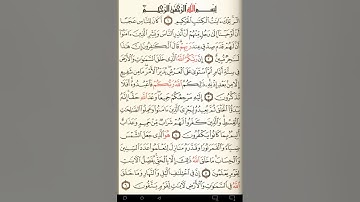 بِسْمِ اللَّهِ الرَّحْمَٰنِ الرَّحِيمِ
الٓر ۚ تِلْكَ ءَايَٰتُ ٱلْكِتَٰبِ ٱلْحَكِيمِ ١ أَكَانَ لِلنَّاسِ عَجَبًا
أَنْ أَوْحَيْنَآ إِلَىٰ رَجُلٍ مِّنْهُمْ أَنْ أَنذِرِ ٱلنَّاسَ وَبَشِّرِ ٱلَّذِينَ ءَامَنُوٓا۟
أَنَّ لَهُمْ قَدَمَ صِدْقٍ عِندَ رَبِّهِمْ ۗ قَالَ ٱلْكَٰفِرُونَ إِنَّ هَٰذَا
لَسَٰحِرٌ مُّبِينٌ ٢ إِنَّ رَبَّكُمُ ٱللَّهُ ٱلَّذِى خَلَقَ ٱلسَّمَٰوَٰتِ وَٱلْأَرْضَ
فِى سِتَّةِ أَيَّامٍ ثُمَّ ٱسْتَوَىٰ عَلَى ٱلْعَرْشِ ۖ يُدَبِّرُ ٱلْأَمْرَ ۖ مَا مِن شَفِيعٍ
إِلَّا مِنۢ بَعْدِ إِذْنِهِۦ ۚ ذَٰلِكُمُ ٱللَّهُ رَبُّكُمْ فَٱعْبُدُوهُ ۚ أَفَلَا
تَذَكَّرُونَ ٣ إِلَيْهِ مَرْجِعُكُمْ جَمِيعًا ۖ وَعْدَ ٱللَّهِ حَقًّا ۚ إِنَّهُۥ
يَبْدَؤُا۟ ٱلْخَلْقَ ثُمَّ يُعِيدُهُۥ لِيَجْزِىَ ٱلَّذِينَ ءَامَنُوا۟ وَعَمِلُوا۟ ٱلصَّٰلِحَٰتِ
بِٱلْقِسْطِ ۚ وَٱلَّذِينَ كَفَرُوا۟ لَهُمْ شَرَابٌ مِّنْ حَمِيمٍ وَعَذَابٌ
أَلِيمٌۢ بِمَا كَانُوا۟ يَكْفُرُونَ ٤ هُوَ ٱلَّذِى جَعَلَ ٱلشَّمْسَ
ضِيَآءً وَٱلْقَمَرَ نُورًا وَقَدَّرَهُۥ مَنَازِلَ لِتَعْلَمُوا۟ عَدَدَ ٱلسِّنِينَ
وَٱلْحِسَابَ ۚ مَا خَلَقَ ٱللَّهُ ذَٰلِكَ إِلَّا بِٱلْحَقِّ ۚ يُفَصِّلُ ٱلْـَٔايَٰتِ
لِقَوْمٍ يَعْلَمُونَ ٥ إِنَّ فِى ٱخْتِلَٰفِ ٱلَّيْلِ وَٱلنَّهَارِ وَمَا خَلَقَ
ٱللَّهُ فِى ٱلسَّمَٰوَٰتِ وَٱلْأَرْضِ لَـَٔايَٰتٍ لِّقَوْمٍ يَتَّقُونَ ٦